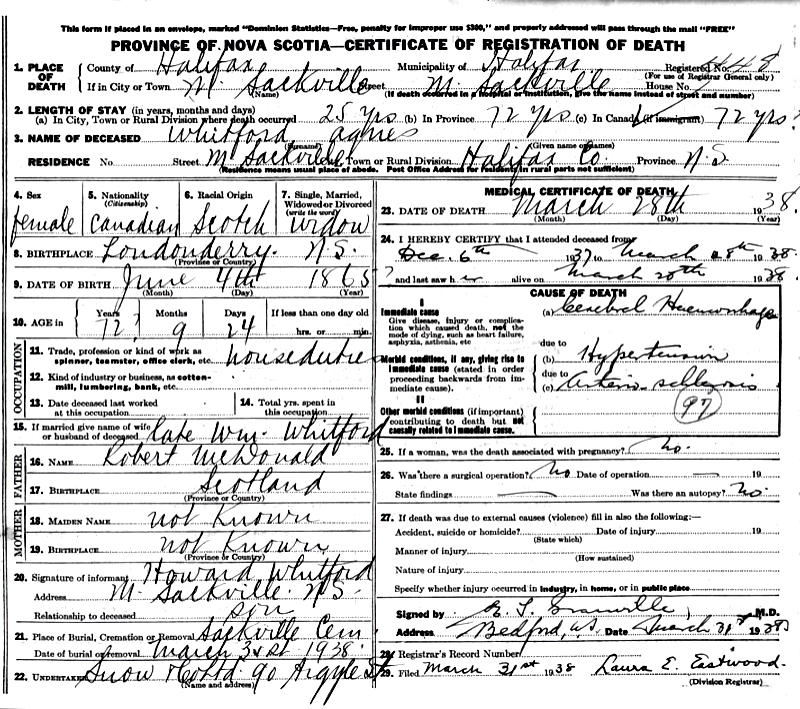 This form if placed in an envelope, marked "Dominion Statistics—Free, penalty for improper use $300," and properly addressed will pass through the mail "FREE"
PROVINCE OF NOVA SCOTIA—CERTIFICATE OF REGISTRATION OF DEATH
1. PLACE OF DEATH { County of Halifax Municipality of Halifax Registered No.
(For use of Registrar General only)
If in City or Town M. Sackville Street M. Sackville House No.
(Name) (If death occurred in a hospital or institution, give the name instead of street and number)
2. LENGTH OF STAY (in years, months and days)
(a) In City, Town or Rural Division where death occurred 25 yrs (b) In Province 72 yrs (c) In Canada (if immigrant) 72 yrs.
3. NAME OF DECEASED Whitford Agnes
(Surname) (Given name or names)
RESIDENCE No. Street M Sackville Town or Rural Division Halifax Co. Province N.S.
(Residence means usual place of abode. Post Office Address for resident in rural parts not sufficient)
4. Sex female
5. Nationality (Citizenship) Canadian
6. Racial Origin Scotch
7. Single, Married, Widowed or Divorced (write the word) widow
8. BIRTHPLACE Londonderry. N.S.
(Province or Country)
9. DATE OF BIRTH June 4th 1865?
(Month) (Day) (Year)
10. AGE in Years 72? Months 9 Days 24 If less than one day old hrs. or min.
OCCUPATION
11. Trade, profession or kind of work as spinner, teamster, office clerk, etc. houseduties
12. Kind of industry or business, as cotton-mill, lumbering, bank, etc.
13. Date deceased last worked at this occupation
14. Total yrs. spent in this occupation
15. If married give name of wife or husband of deceased late Wm. Whitford
FATHER
16. NAME Robert McDonald
17. BIRTHPLACE Scotland
(Province or Country)
MOTHER
18. MAIDEN NAME not Known
19. BIRTHPLACE not Known
(Province or Country)
20. Signature of informant Howard Whitford
Address M. Sackville. N.S.
Relationship to deceased son
21. Place of Burial, Cremation or Removal Sackville Cem.
Date of burial or removal March 31st 1938
22. UNDERTAKER Snow & Co Ltd 90 Argyle St
(Name and address)
MEDICAL CERTIFICATE OF DEATH
23. DATE OF DEATH March 28th 1938.
(Month) (Day) (Year)
24. I HEREBY CERTIFY that I attended deceased from
Dec. 6th 1937 to March 28th 1938
and last saw her alive on March 28th 1938.
CAUSE OF DEATH
I
Immediate cause
Give disease, injury or complication which caused death, not the mode of dying, such as heart failure, asphyxia, asthenia, etc
(a) Cerebral Haemorrhage
due to
Morbid conditions, if any, giving rise to immediate cause (stated in order proceeding backwards from immediate cause).
(b) Hypertension
due to
(c) Arterio-schlerosis
97
II
Other morbid conditions (if important) contributing to death but not causally related to immediate cause.
25. If a woman, was the death associated with pregnancy? No.
26. Was there a surgical operation? No Date of operation — 19
State findings — Was there an autopsy? No.
27. If death was due to external causes (violence) fill in also the following:—
Accident, suicide or homicide? Date of injury 19
(State which)
Manner of injury
(How sustained)
Nature of injury
Specify whether injury occurred in industry, in home, or in public place
Signed by M.D.
Address Bedford, N.S. Date March 31st 1938
28. Registrar's Record Number
29. Filed March 31st 1938 Laura E. Eastwood.
(Division Registrar)